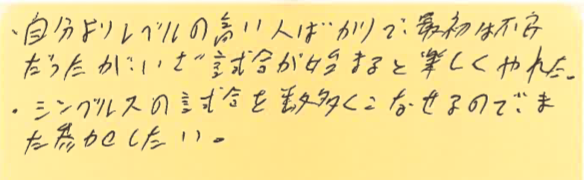 ・自分よりレベルの高い人ばかりで、最初は不安
だったが、いざ試合が始まると楽しくやれた。
・シングルスの試合を数多くこなせるので、ま
た参加したい。